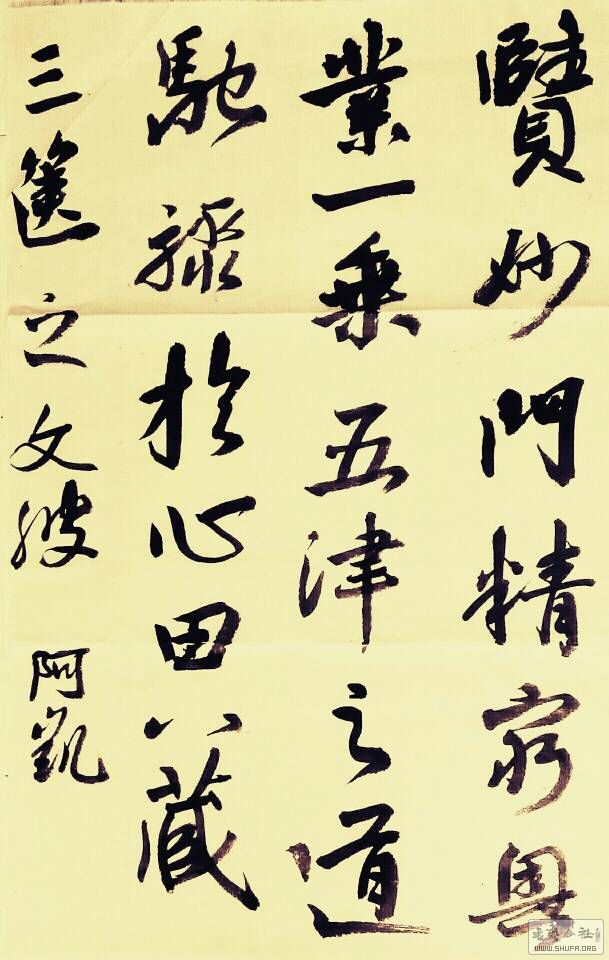 賾妙門精窮奧
業一乘五津之道
馳驟於心田八藏
三篋之文波
阿凱
WWW.SHUFA.ORG